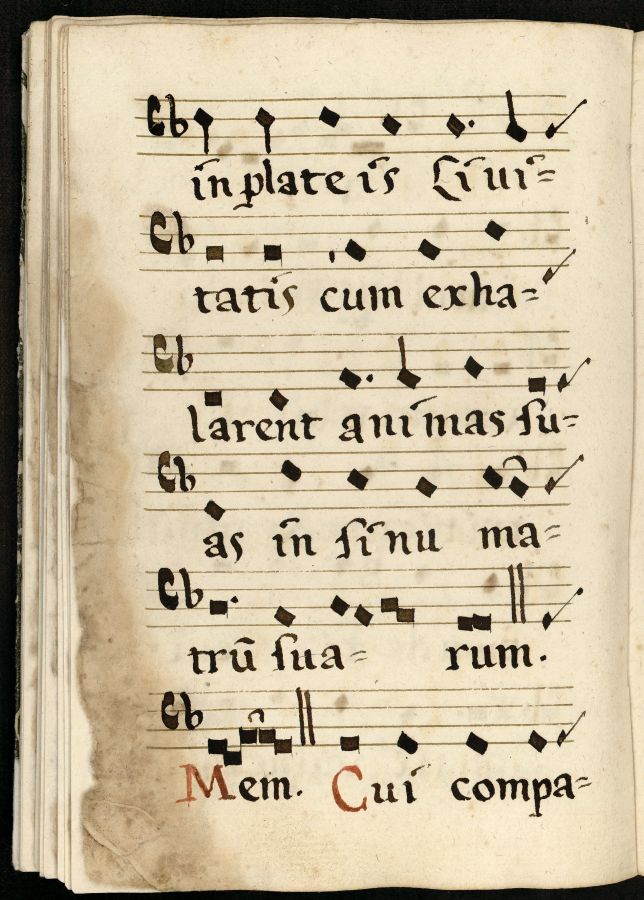 in plateis Civi=
tatis cum exha=
larent animas su=
as in sinu ma=
trū sua= rum.
Mem. Cui compa=